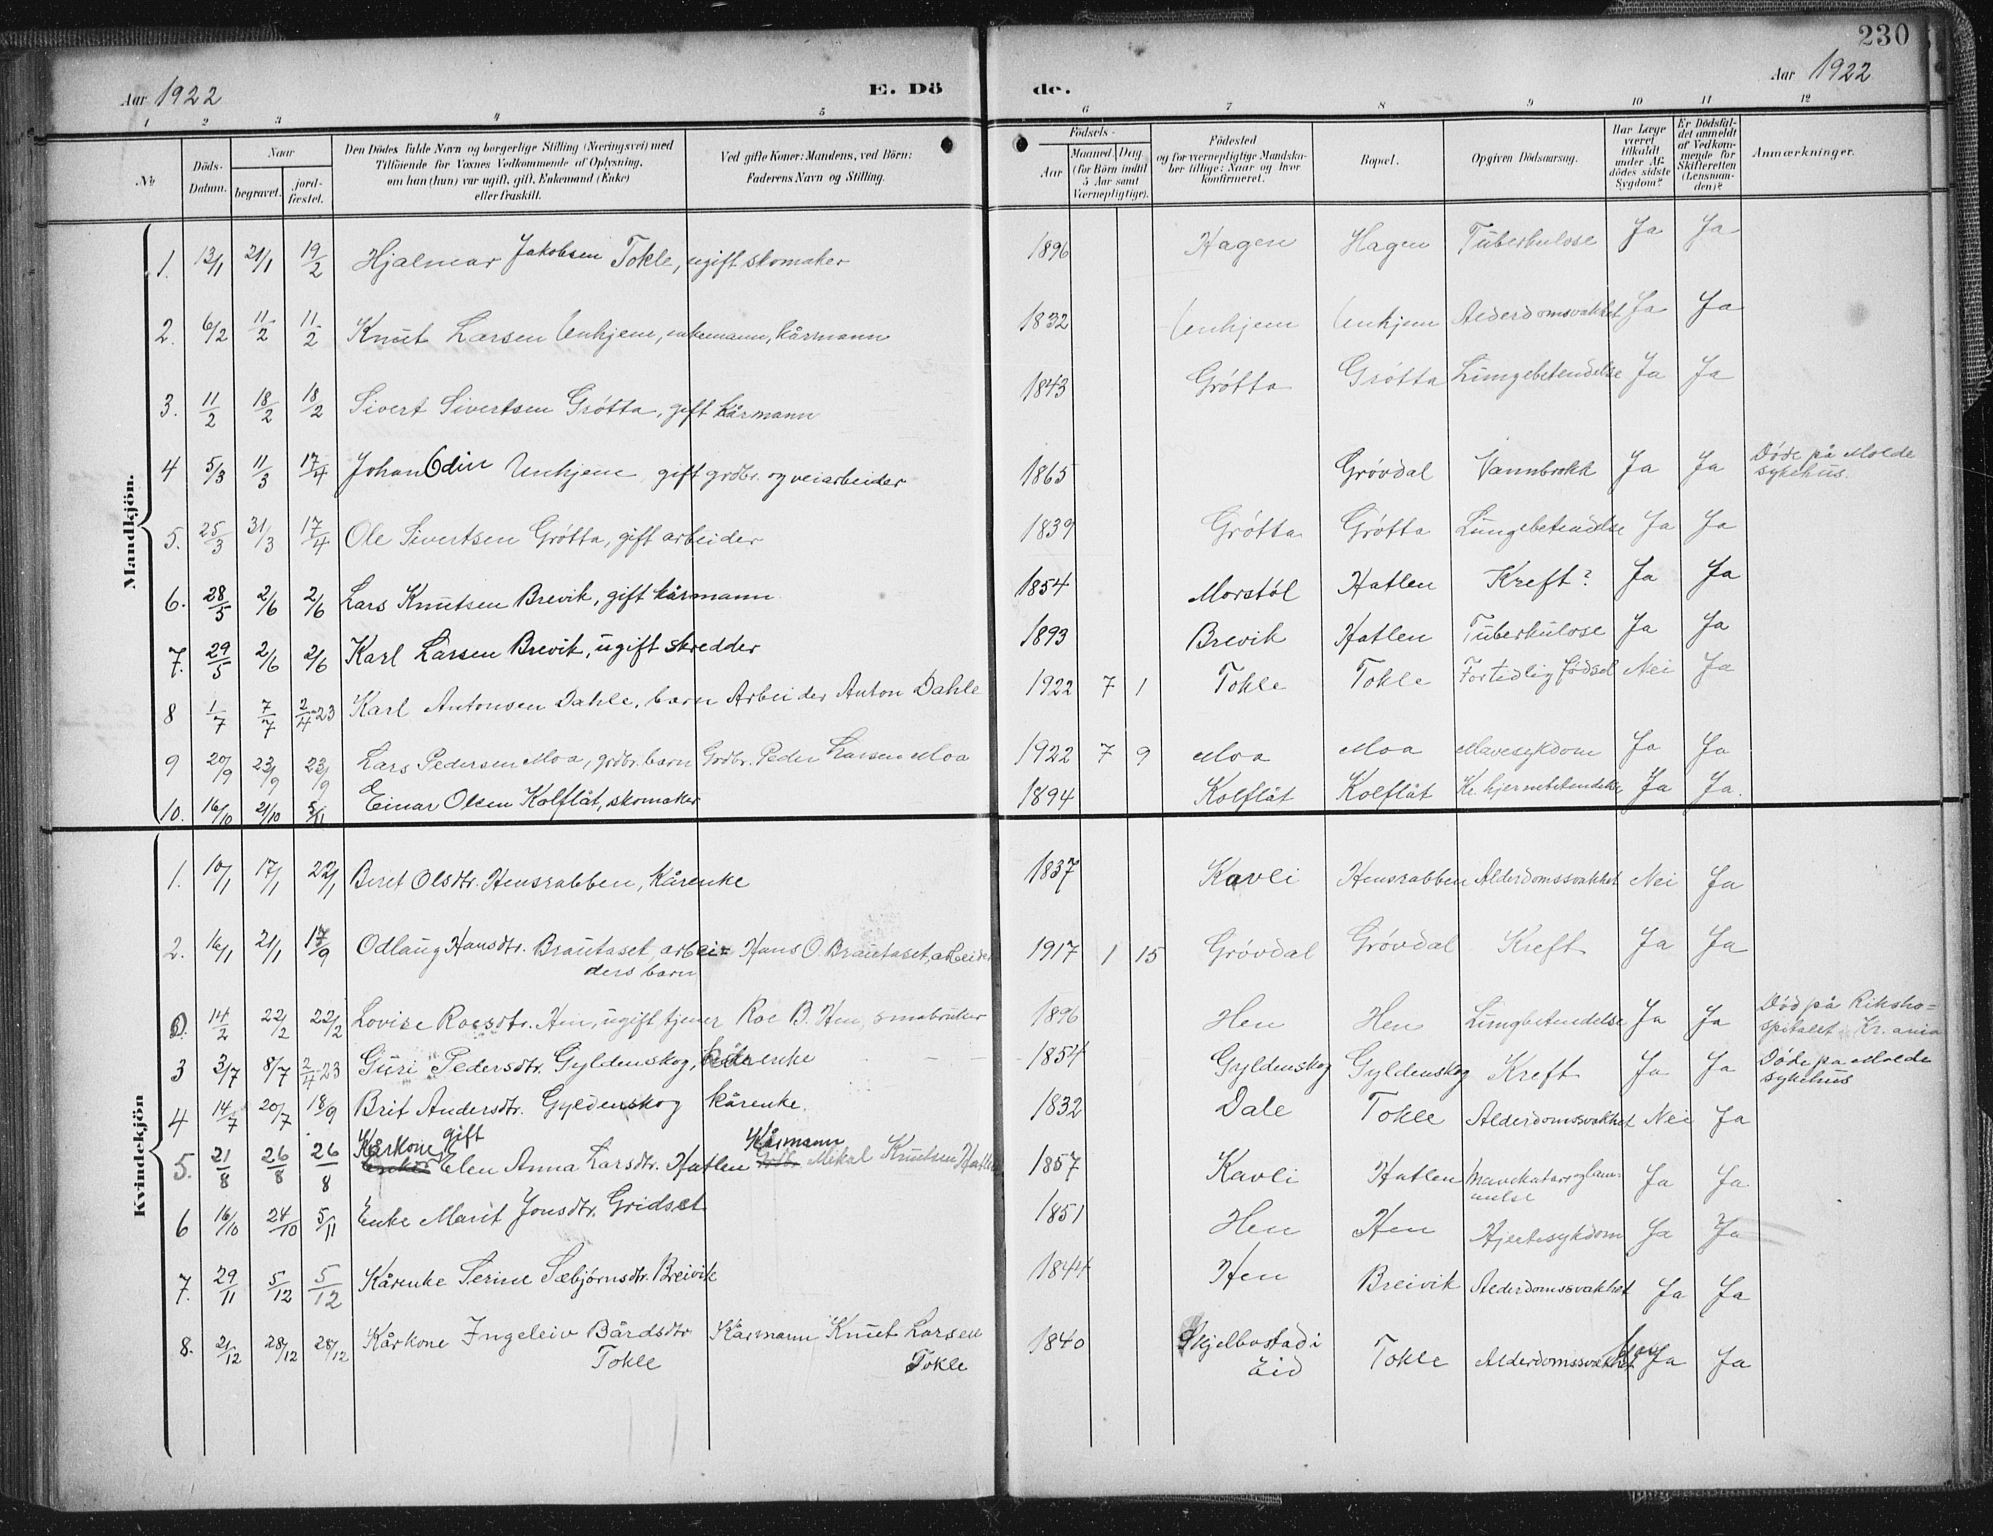 230
Aar 1922 E. Dö
de. Aar 1922
1 2 3 4 5
6 7 8 9 10 11 12
No
Döds-Datum.
Naar
begravet.
jord-fæstet.
Den Dödes fulde Navn og borgerlige Stilling (Næringsvei) med
Tilföiende for Voxnes Vedkommende af Oplysning,
om han (hun) var ugift, gift, Enkemand (Enke)
eller fraskilt.
Ved gifte Koner: Mandens, ved Börn:
Faderens Navn og Stilling.
Födsels-
Aar
Maaned. Dag.
(for Börn indtil
5 Aar samt
Værnepligtige).
Födested
og for værnepligtige Mandska-
ber tillige: Naar og hvor
konfirmeret.
Bopæl.
Opgiven Dödsaarsag.
Har Læge
været
tilkaldt
under Af-
dödes sidste
Sygdom?
Er Dödsfal-
det anmeldt
af Vedkom-
mende for
Skifteretten
(Lensman-
den)?
Anmærkninger.
Mandkjön.
1. 13/1 21/1 19/2 Hjalmar Jakobsen Tokle, ugift skomaker 1896 Hagen Hagen Tuberkulose Ja Ja
2. 6/2 11/2 11/2 Knut Larsen Unhjem, enkemann, kårmann 1832 Unhjem Unhjem Alderdomsvakhet Ja Ja
3. 11/2 18/2 18/2 Sivert Sivertsen Grótta, gift kårmann 1843 Grótta Grótta Lungebetendelse Ja Ja
4 5/3 11/3 17/4 Johan Odin Unhjem gift grdbr. og veiarbeider 1865 Gróvdal Vannbrokk Ja Ja Døde på Molde
sykehus.
5. 25/3 31/3 17/4 Ole Sivertsen Grótta, gift arbeider 1839 Grótta Grótta Lungebetendelse Ja Ja
6. 28/5 2/6 2/6 Lars Knutsen Brevik, gift kårmann 1854 Morstól Hatlen Kreft? Ja Ja
7. 29/5 2/6 2/6 Karl Larsen Brevik, ugift skredder 1893 Brevik Hatlen Tuberkulose Ja Ja
8 1/7 7/7 2/4-23 Karl Antonsen Dahle, barn Arbeider Anton Dahle 1922 7 1 Tokle Tokle Fortidlig fødsel Nei Ja
9 20/9 23/9 23/9 Lars Pedersen Moa, grdbr. barn Grdbr. Peder Larsen Moa 1922 7 9 Moa Moa Mavesykdom Ja Ja
10. 16/10 21/10 5/11 Einar Olsen Kolflåt, skomaker 1894 Kolflåt Kolflåt Kr. hjernebetendelse Ja Ja.
Kvindekjön
1. 10/1 17/1 22/1 Beret Olsdtr. Hensrabben, Kårenke 1837 Kavli Hensrabben Alderdomssvakhet Nei Ja
2. 16/1 21/1 17/9 Odlaug Hansdtr. Brautaset, arbei= Hans O. Brautaset, arbeider 1917 1 15 Gróvdal Gróvdal Kreft Ja Ja
ders barn
14/2 22/2 22/2 Lovise Roesdtr. Hen, ugift tjener Roe B. Hen, småbruker 1896 Hen Hen Lungbetendelse Ja Ja Død på Riksho=
spitalet i Kr.ania
3 3/7 8/7 2/4-23 Guri Pedersdtr. Gyldenskog, kårenke 1854 Gyldenskog Gyldenskog Kreft Ja Ja Døde på Molde
sykehus
4 14/7 20/7 18/9 Brit Andersdtr. Gyldenskog kårenke. 1832 Dale Tokle Alderdomssvakhet Nei Ja
Kårkone gift Kårmann
5. 21/8 26/8 26/8 Elen Anna Larsdtr. Hatlen Grdbr. Mikal Knutsen Hatlen 1857 Kavli Hatlen Mavekatarr og lam-
melse Ja Ja
6 16/10 24/10 5/11 Enke Marit Jonsdtr. Gridset 1851 Hen Hen Hjertesykdom Ja Ja
7. 29/11 5/12 5/12 Kårenke Serine Sæbjørnsdtr. Breivik 1844 Hen Breivik Alderdomssvakhet Ja Ja
8. 21/12 28/12 28/12 Kårkone Ingeleiv Bårdsdtr Kårmann Knut Larsen 1840 Skjelbostad i Tokle Alderdomssvakhet Ja Ja
Tokle Tokle Eid